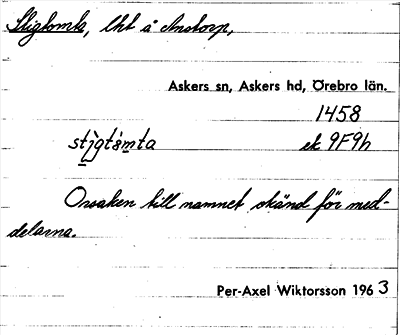 Stigtomta, lht å Anstorp,
Askers sn, Askers hd, Örebro län.
1458
stìgtòmta ek 9F9h
Orsaken till namnet okänd för med-
delarna.
Per-Axel Wiktorsson 1963